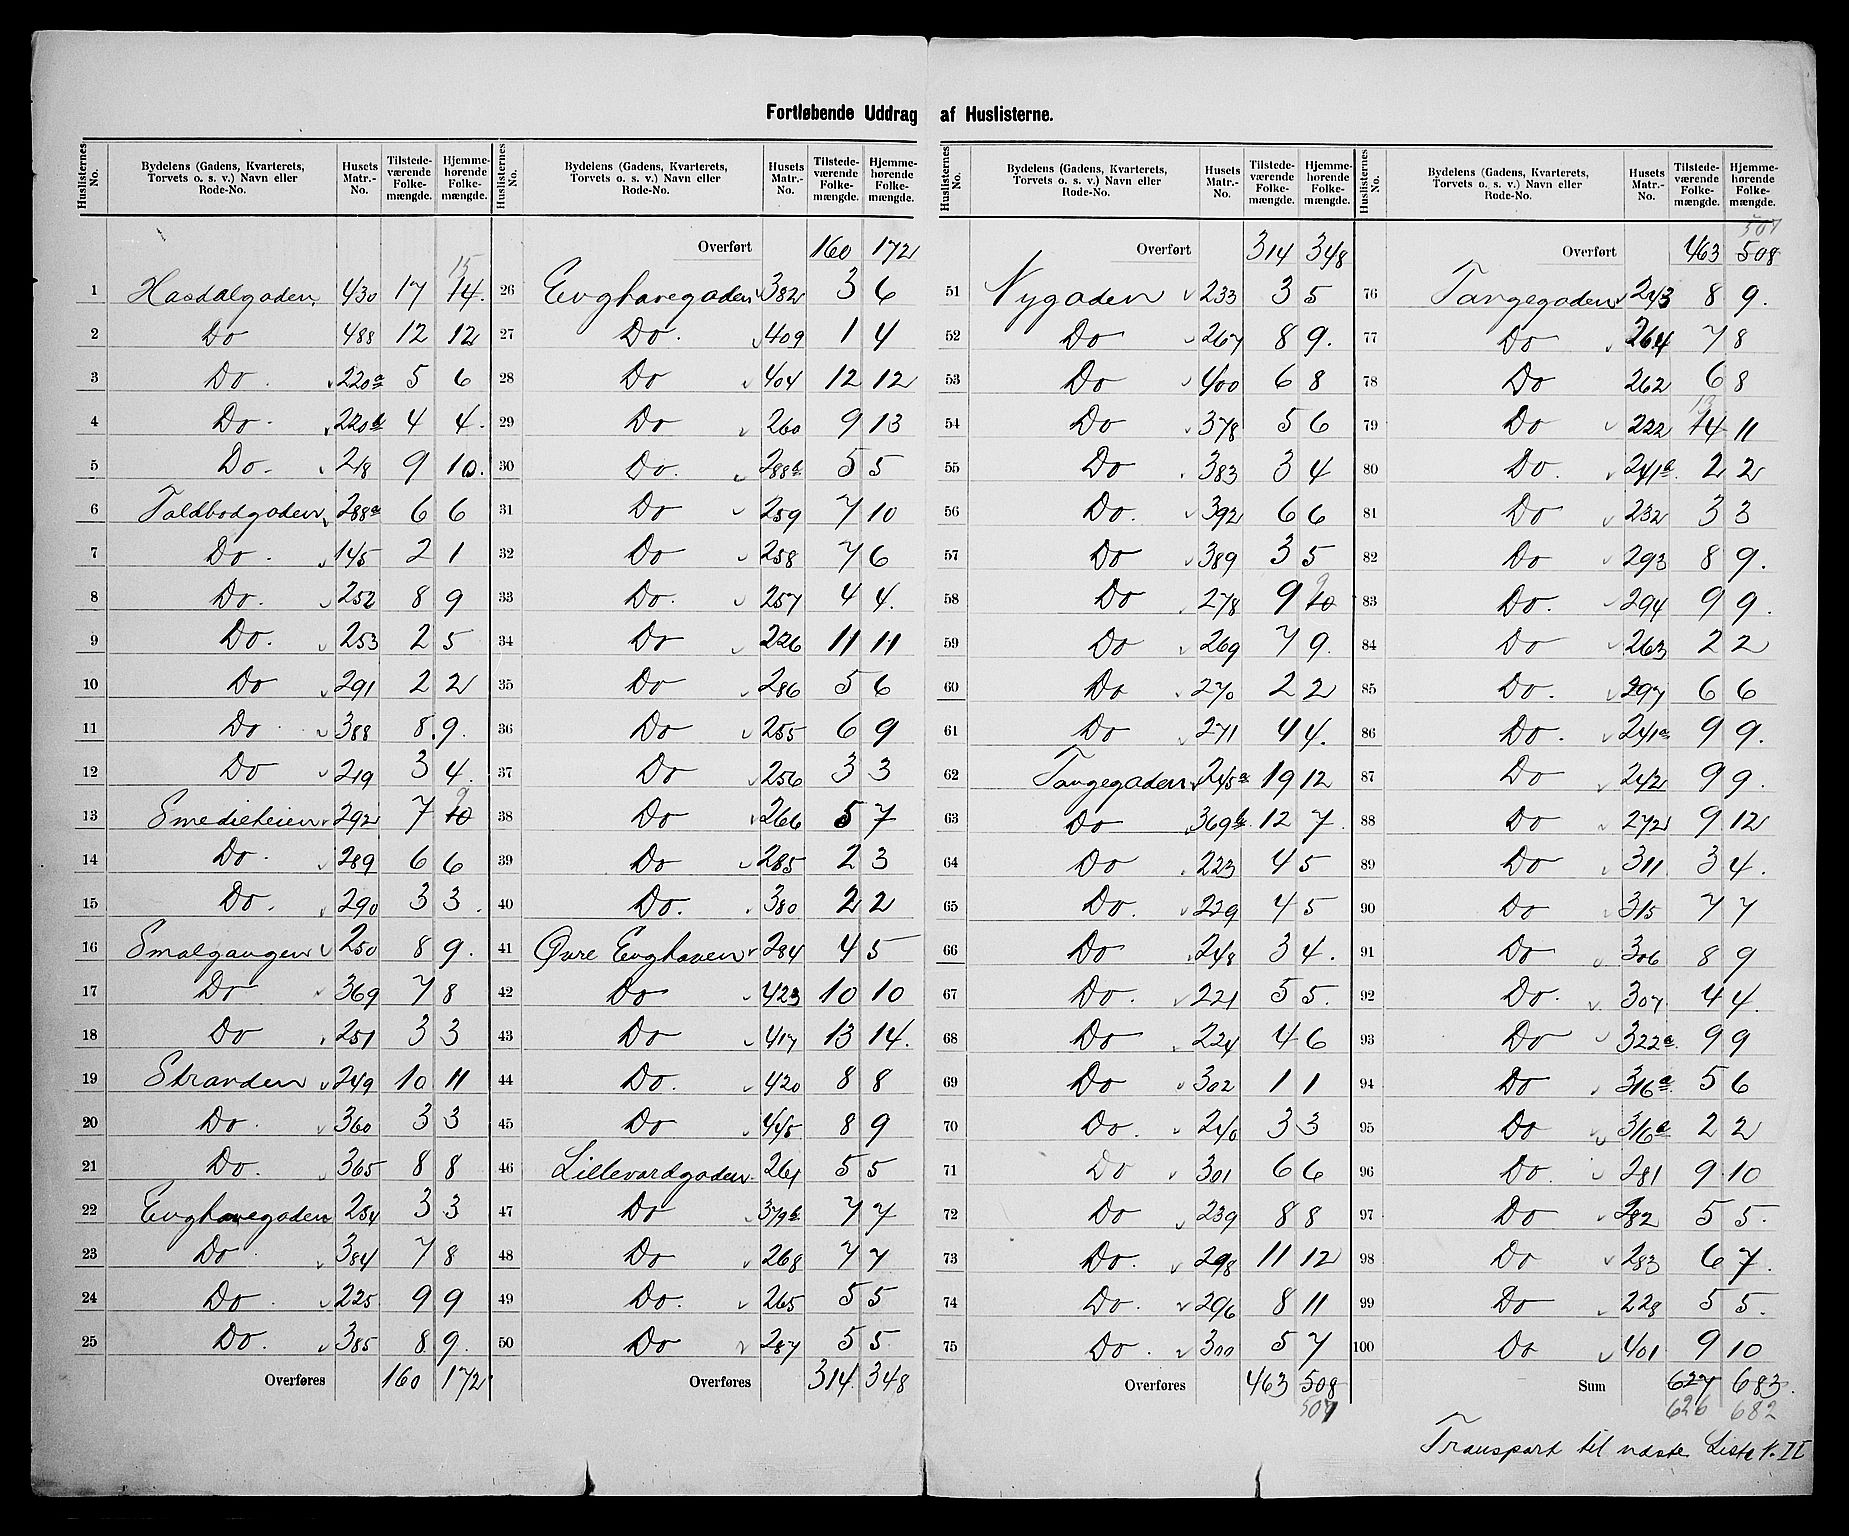 Fortløbende Uddrag af Huslisterne.
Huslisternes No. Bydelens (Gadens, Kvarterets, Torvets o. s. v.) Navn eller Rode-No. Husets Matr.-No. Tilstedeværende Folkemængde. Hjemmehørende Folkemængde.
1 Hasdalgaden 430 17 14. 15
2 Do 488 12 12
3 Do. 220a 5 6
4 Do. 220b 4 4.
5 Do. 218 9 10.
6 Toldbodgaden 288a 6 6
7 Do. 145 2 1
8 Do. 252 8 9
9 Do. 253 2 5
10 Do 291 2 2
11 Do 388 8. 9.
12 Do 219 3 4.
13 Smedieheien 292 7 10 9
14 Do. 289 6 6
15 Do. 290 3 3.
16 Smalgangen 250 8 9.
17 Do 369 7 8
18 Do 251 3 3
19 Stranden 249 10 11
20 Do. 360 3 3
21 Do. 365 8 8
22 Enghavegaden 254 3 3
23 Do. 384 7 8
24 Do. 225 9 9
25 Do. 385 8 9.
Overføres 160 172
Huslisternes No. Bydelens (Gadens, Kvarterets, Torvets o. s. v.) Navn eller Rode-No. Husets Matr.-No. Tilstedeværende Folkemængde. Hjemmehørende Folkemængde.
Overført 160 172
26 Enghavegaden 382 3 6
27 Do. 409 1 4
28 Do 404 12 12
29 Do 260 9 13
30 Do. 288b 5 5
31 Do 259 7 10
32 Do 258 7 6
33 Do. 257 4 4.
34 Do 226 11 11
35 Do 286 5 6
36 Do 255 6 9
37 Do 256 3 3
38 Do 266 5 7
39 Do 285 2 3
40 Do. 380 2 2
41 Øvre Enghaven 284 4 5
42 Do 423 10 10
43 Do 417 13 14.
44 Do. 420 8 8
45 Do 445 8 9
46 Lillevardgaden 261 5 5
47 Do 379b 7 7
48 Do 268 7 7
49 Do. 265 5 5
50 Do 287 5 5
Overføres 314 348
Huslisternes No. Bydelens (Gadens, Kvarterets, Torvets o. s. v.) Navn eller Rode-No. Husets Matr.-No. Tilstedeværende Folkemængde. Hjemmehørende Folkemængde.
Overført 314 348
51 Nygaden 233 3 5
52 Do 267 8 9.
53 Do 400 6 8
54 Do 378 5 6
55 Do 383 3 4
56 Do. 392 6 6
57 Do 389 3 5
58 Do 278 9 10 9
59 Do 269 7 9.
60 Do 270 2 2
61 Do 271 4 4.
62 Tangegaden 245a 19 12
63 Do 369b. 12 7.
64 Do 223 4 5
65 Do. 229 4 5
66 Do 248 3 4.
67 Do. 221 5 5.
68 Do 224 4 6
69 Do 302 1 1
70 Do. 240 3 3
71 Do 301 6 6
72 Do 239 8 8
73 Do. 298 11 12
74 Do. 296 8 11
75 Do. 300 5 7
Overføres 463 508
507
Huslisternes No. Bydelens (Gadens, Kvarterets, Torvets o. s. v.) Navn eller Rode-No. Husets Matr.-No. Tilstedeværende Folkemængde. Hjemmehørende Folkemængde.
507
Overført 463 508
76 Tangegaden 243 8 9.
77 Do 264 7 8
78 Do 262 6 8
79 Do 222 14 13 11
80 Do. 241a. 2 2
81 Do 232 3 3
82 Do 293 8 9.
83 Do. 294 9 9.
84 Do 263 2 2
85 Do. 297 6 6
86 Do. 241a 9 9.
87 Do 242 9 9.
88 Do 272 9 12
89 Do 311 3 4.
90 Do 315 7 7
91 Do 306 8 9
92 Do. 307. 4 4.
93 Do 322a. 9 9
94 Do 316a. 5 6
95 Do 316a 2 2
96 Do. 281 9 10
97 Do 282 5 5.
98 Do 283 6 7.
99 Do 228 5 5.
100 Do 401 9 10
Sum 627 683.
626 682
Transport til næste Liste N. II